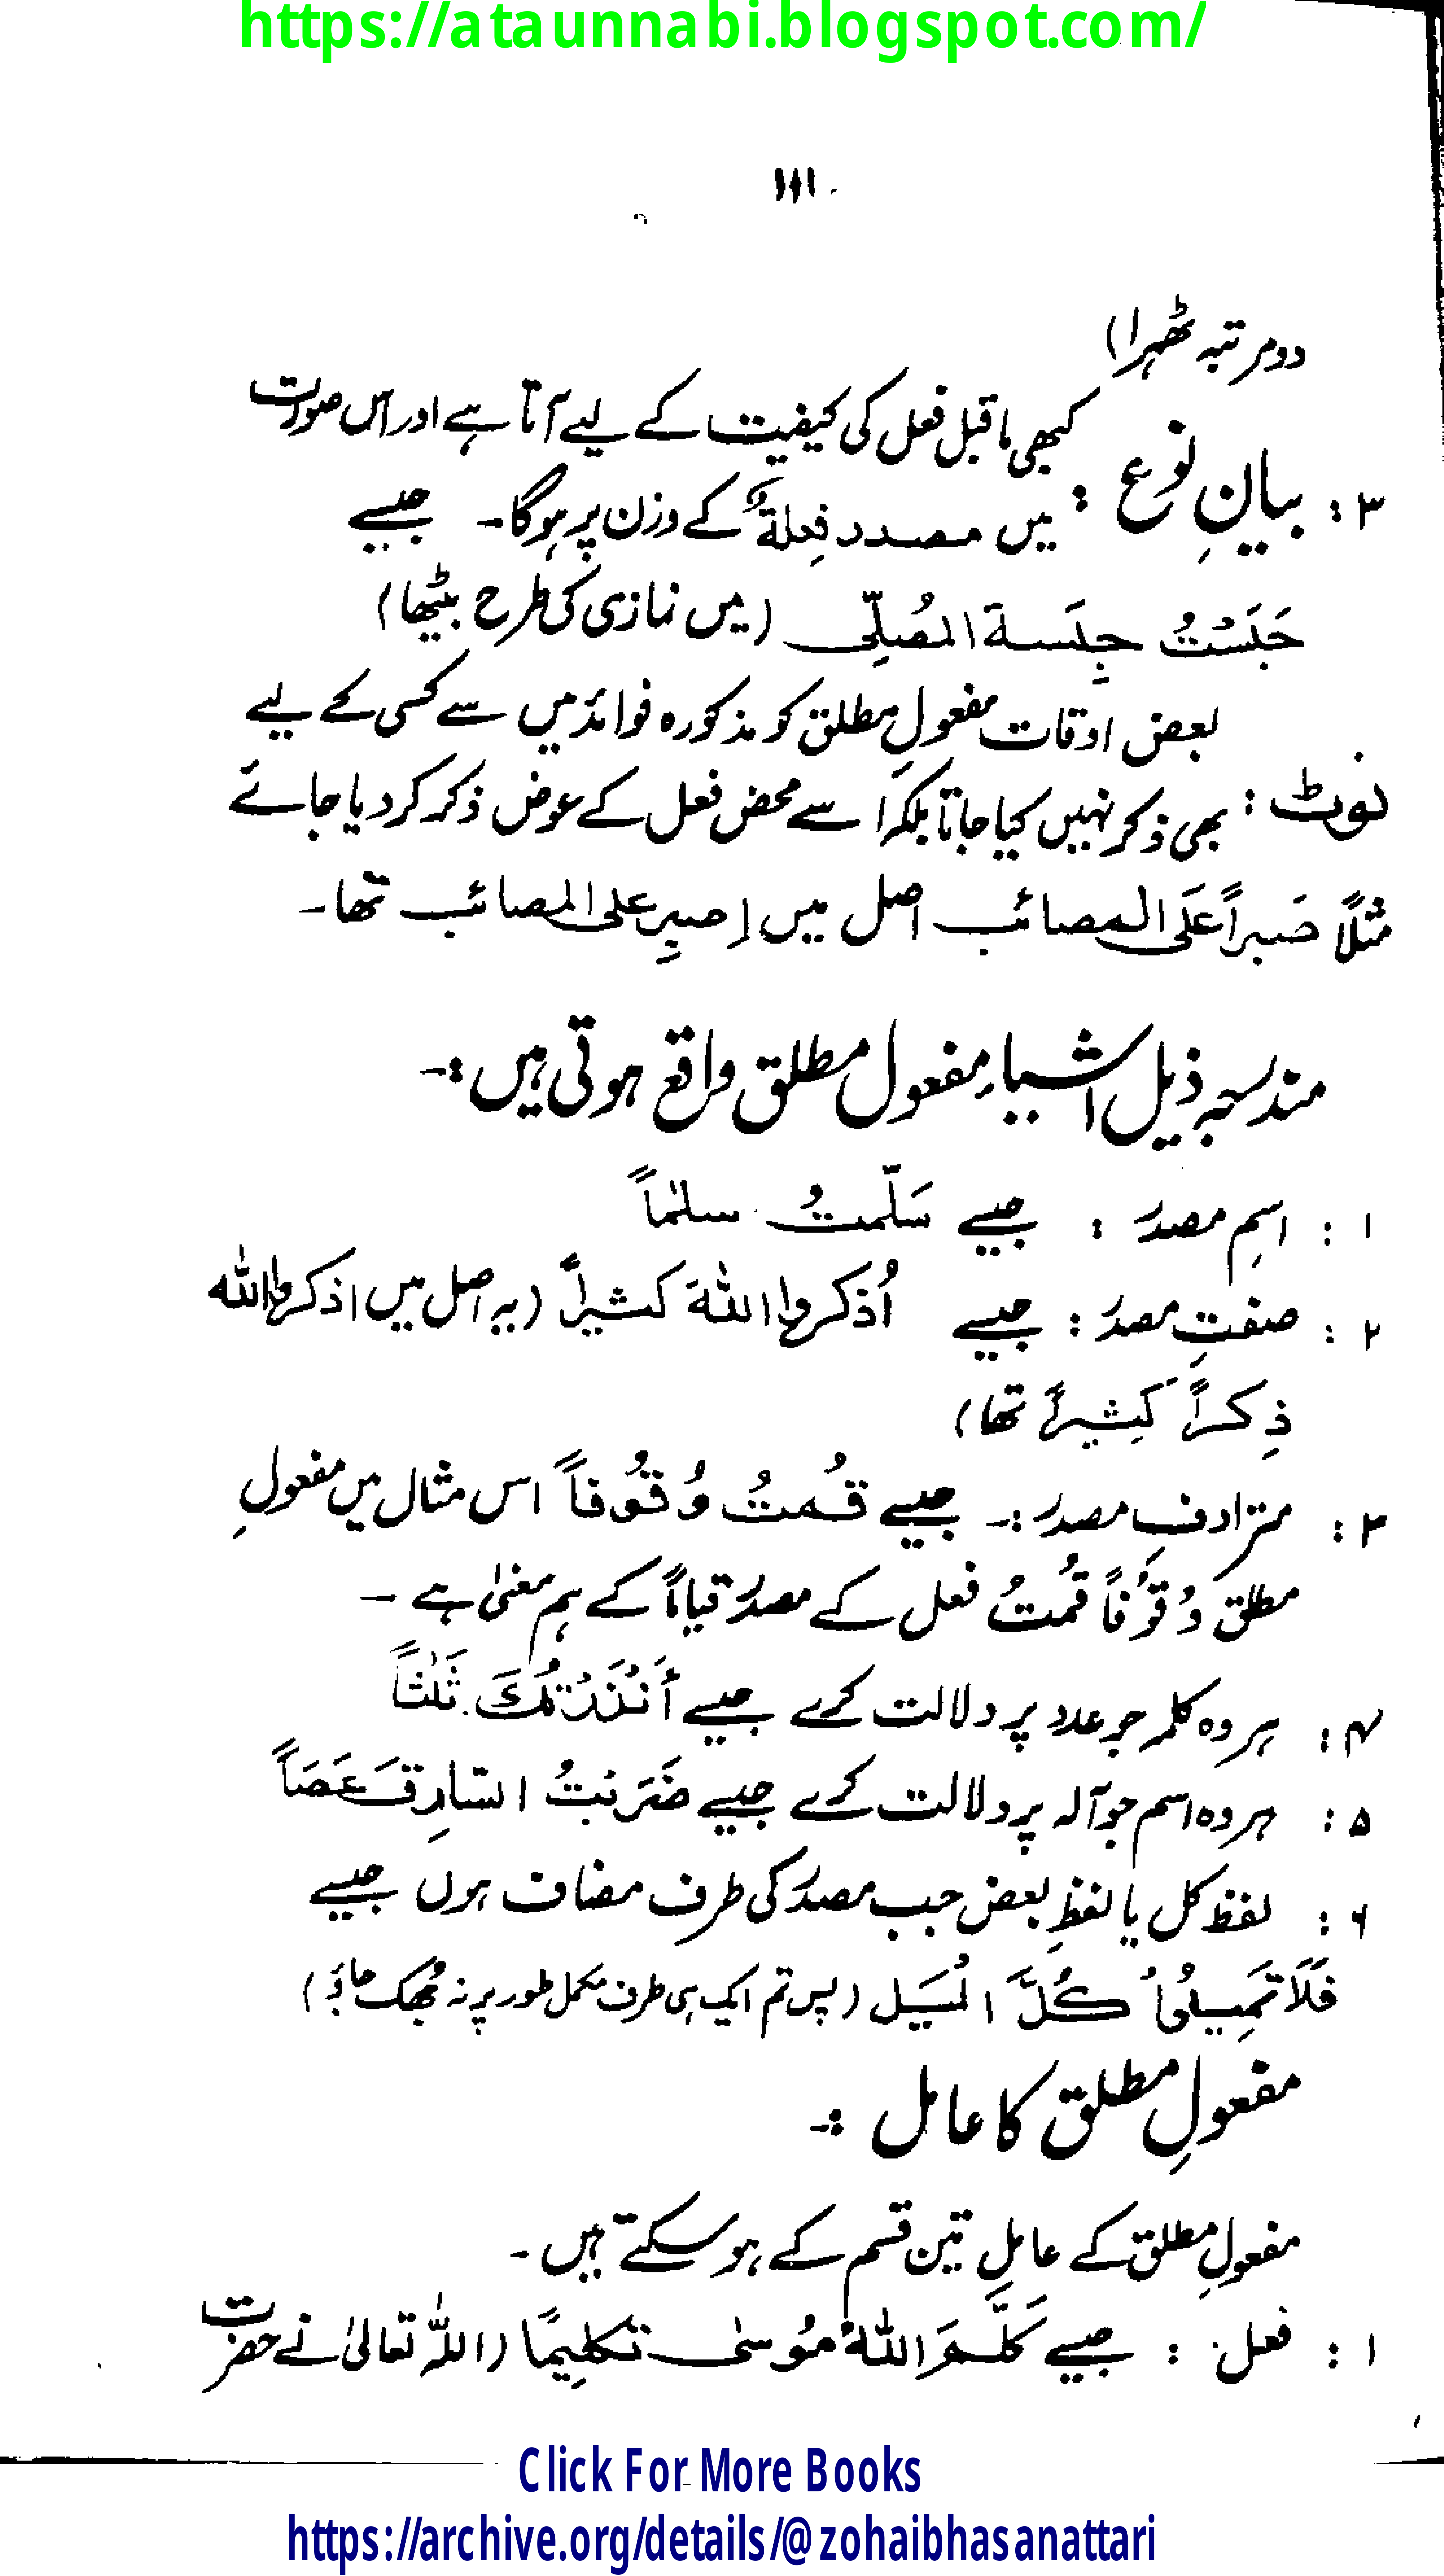 https://ataunnabi.blogspot.com/
۱۱۱
دو مرتبہ ٹھہرا)
۳ : بیانِ نوع : کبھی ماقبل فعل کی کیفیت کے لیے آتا ہے اور اس صورت
میں مصدر فِعلۃٌ کے وزن پر ہوگا۔ جیسے
جَلَسْتُ جِلَسۃ المُصَلِّی (میں نمازی کی طرح بیٹھا)
بعض اوقات مفعولِ مطلق کو مذکورہ فوائد میں سے کسی کے لیے
نوٹ : بھی ذکر نہیں کیا جاتا بلکہ اسے محض فعل کے عوض ذکر کر دیا جائے
مثلاً صَبراً عَلَی المصائب اصل میں اِصبِر علی المصائب تھا۔
مندرجہ ذیل اشیاء مفعول مطلق واقع ہوتی ہیں :۔
۱ : اسمِ مصدر : جیسے سَلّمتُ سلٰماً
۲ : صفتِ مصدر : جیسے اُذکروا اللہَ کثیراً (یہ اصل میں اذکروا اللہ
ذِکراً کَثِیراً تھا)
۳ : مترادفِ مصدر :۔ جیسے قُمتُ وُقُوفاً اس مثال میں مفعولِ
مطلق وُقوُفاً قُمتُ فعل کے مصدر قیاماً کے ہم معنیٰ ہے ۔
۴ : ہر وہ کلمہ جو عدد پر دلالت کرے جیسے أَنْذَرْتُکَ ثَلٰثاً
۵ : ہر وہ اسم جو آلہ پر دلالت کرے جیسے ضَرَبْتُ السّارِقَ عَصَاً
۶ : لفظ کل یا لفظِ بعض جب مصدر کی طرف مضاف ہوں جیسے
فَلَا تَمِیلُوا کُلَّ المَیل (پس تم ایک ہی طرف مکمل طور پر نہ جھک جاؤ)
مفعولِ مطلق کا عامل :۔
مفعولِ مطلق کے عامل تین قسم کے ہو سکتے ہیں ۔
۱ : فعل : جیسے کَلَّمَ اللہُ مُوسٰی تکلِیمًا (اللہ تعالیٰ نے حضرت
Click For More Books
https://archive.org/details/@zohaibhasanattari